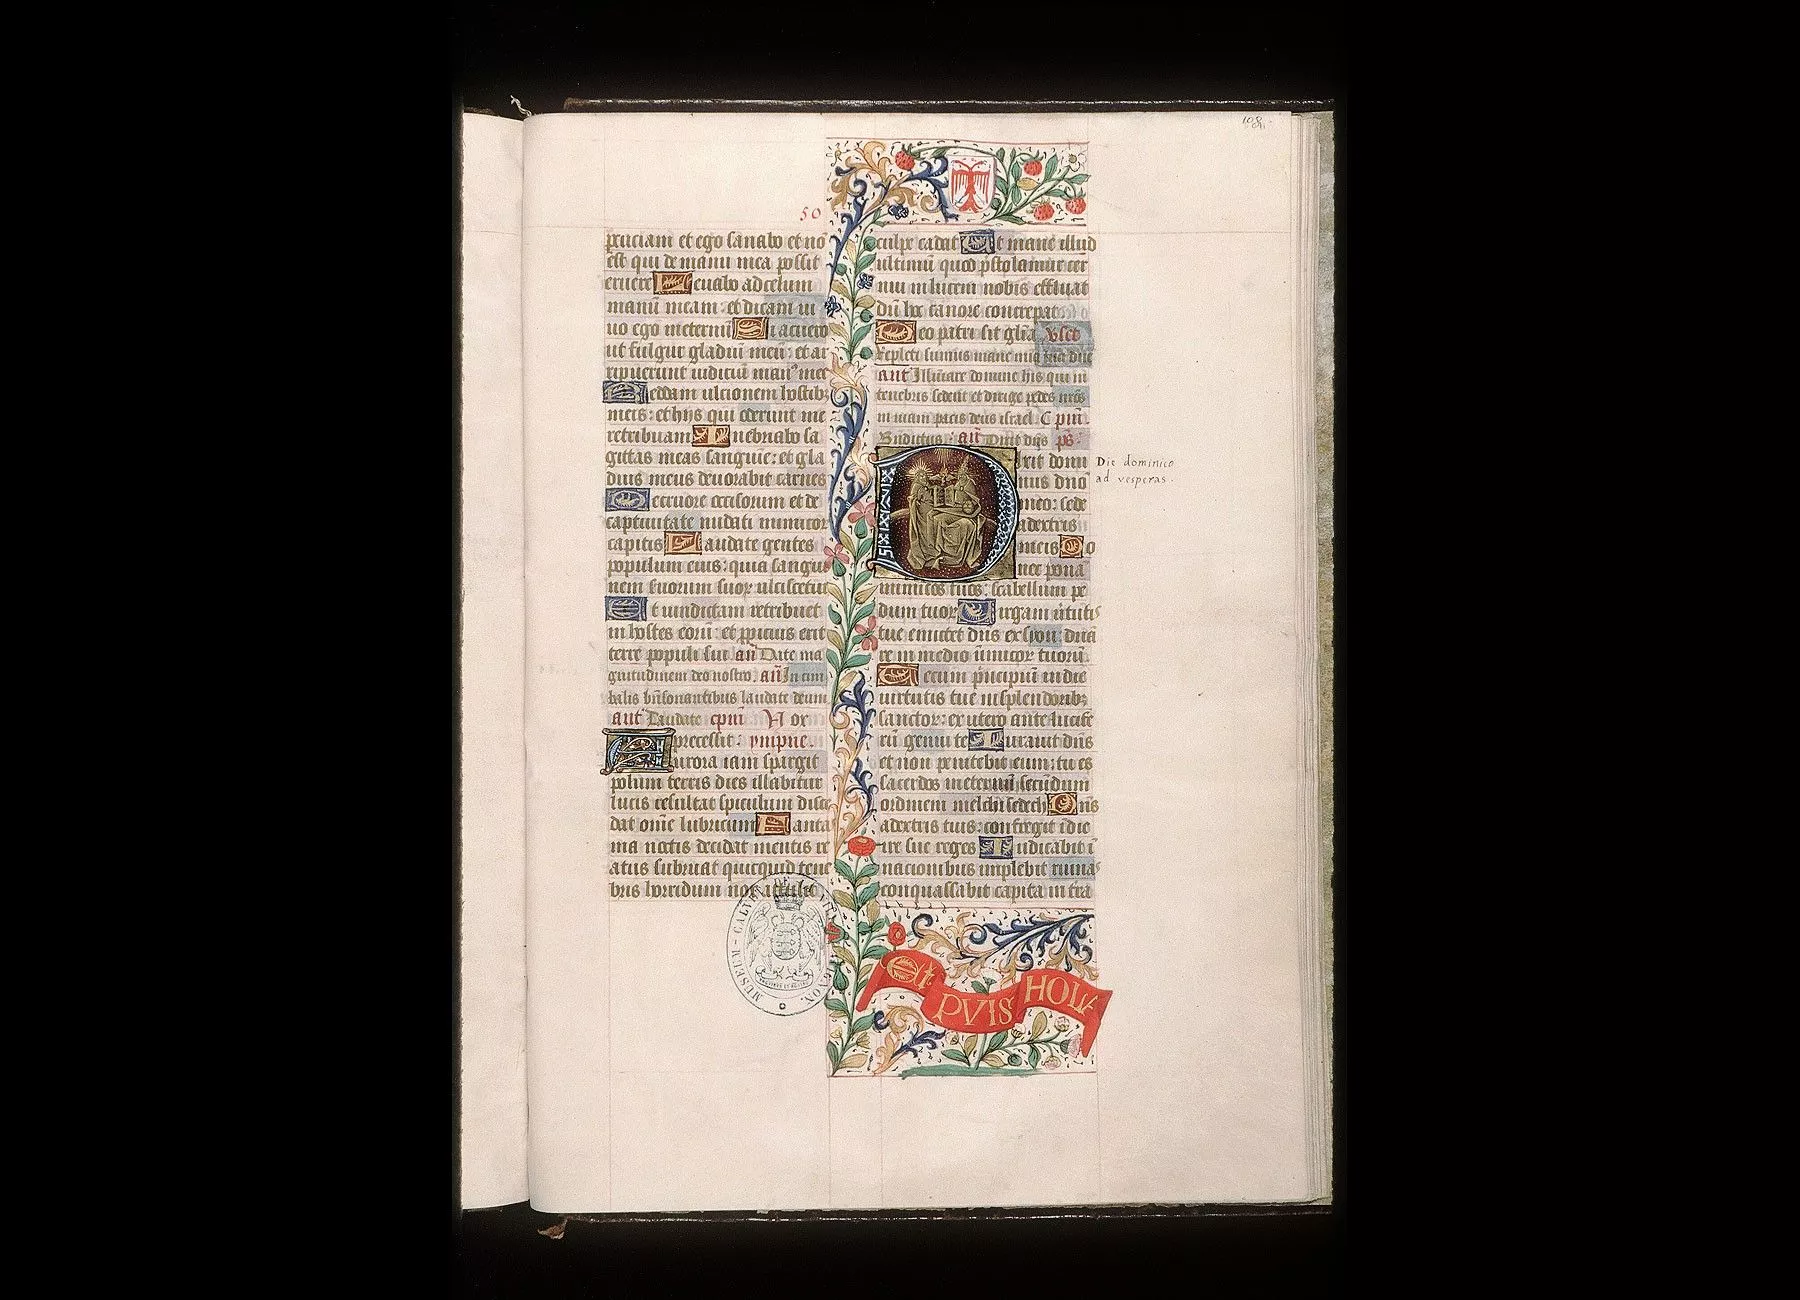 108
50
percuciam et ego sanabo et nō
est qui de manu mea possit
eruere Leuabo ad celum
manū meam : et dicam ui
uo ego ineternū Si acuero
ut fulgur gladiū meū : et ar
ripuerint iudiciū man9 mea
Reddam ulcionem hostib3
meis : et hijs qui oderunt me
retribuam Inebriabo sa
gittas meas sanguīe : et gla
dius meus deuorabit carnes
De cruore occisorum et de
captiuitate nudati inimicor
capitis Laudate gentes
populum eius : quia sangui
nem suorum suor ulciscetur
Et uindictam retribuet
in hostes eorū : et ppicius erit
terre populi sui añ Date ma
gnitudinem deo nostro. añ In cim
balis bñsonantibus laudate deum
añt Laudate cplm Nox
precessit. ympne.
Aurora iam spargit
polum terris dies illabitur
lucis resultat spiculum disce
dat omē lubricum Fanta
ma noctis decidat mentis re
atus subruat quicquid tene
bris horridum noctis
culpe cadat Et mane illud
ultimū quod pstolamur cer
nui in lucem nobis effluat
dū hoc canore concrepat
Deo patri sit glīa vset
Repleti sumus mane mīa tua dñe
añt Illūiare domine his qui in
tenebris sedent et dirige pedes nr̄os
in uiam pacis deus israel. C plm
Bn̄dictus. añ Dixit dn̄s ps.
Dixit domi
nus dn̄o
meo : sede
a dextris
meis Do
nec ponā
inimicos tuos : scabellum pe
dum tuor Uirgam u̇tutis
tue emittet dn̄s ex syon : dn̄ā
re in medio inimicor tuorū.
Tecum pncipiū in die
uirtutis tue in splendorib3
sanctor : ex utero ante lucife
rū genui te Iurauit dn̄s
et non penitebit eum : tu es
sacerdos ineternū secūdum
ordinem melchisedech Dn̄s
a dextris tuis : confregit ī die
ire sue reges Iudicabit ī
nacionibus implebit ruinas
conquassabit capita in tra
Die dominico
ad vesperas.
PVIS
MUSEUM - CALVET DE LA VILLE D'AVIGNON.